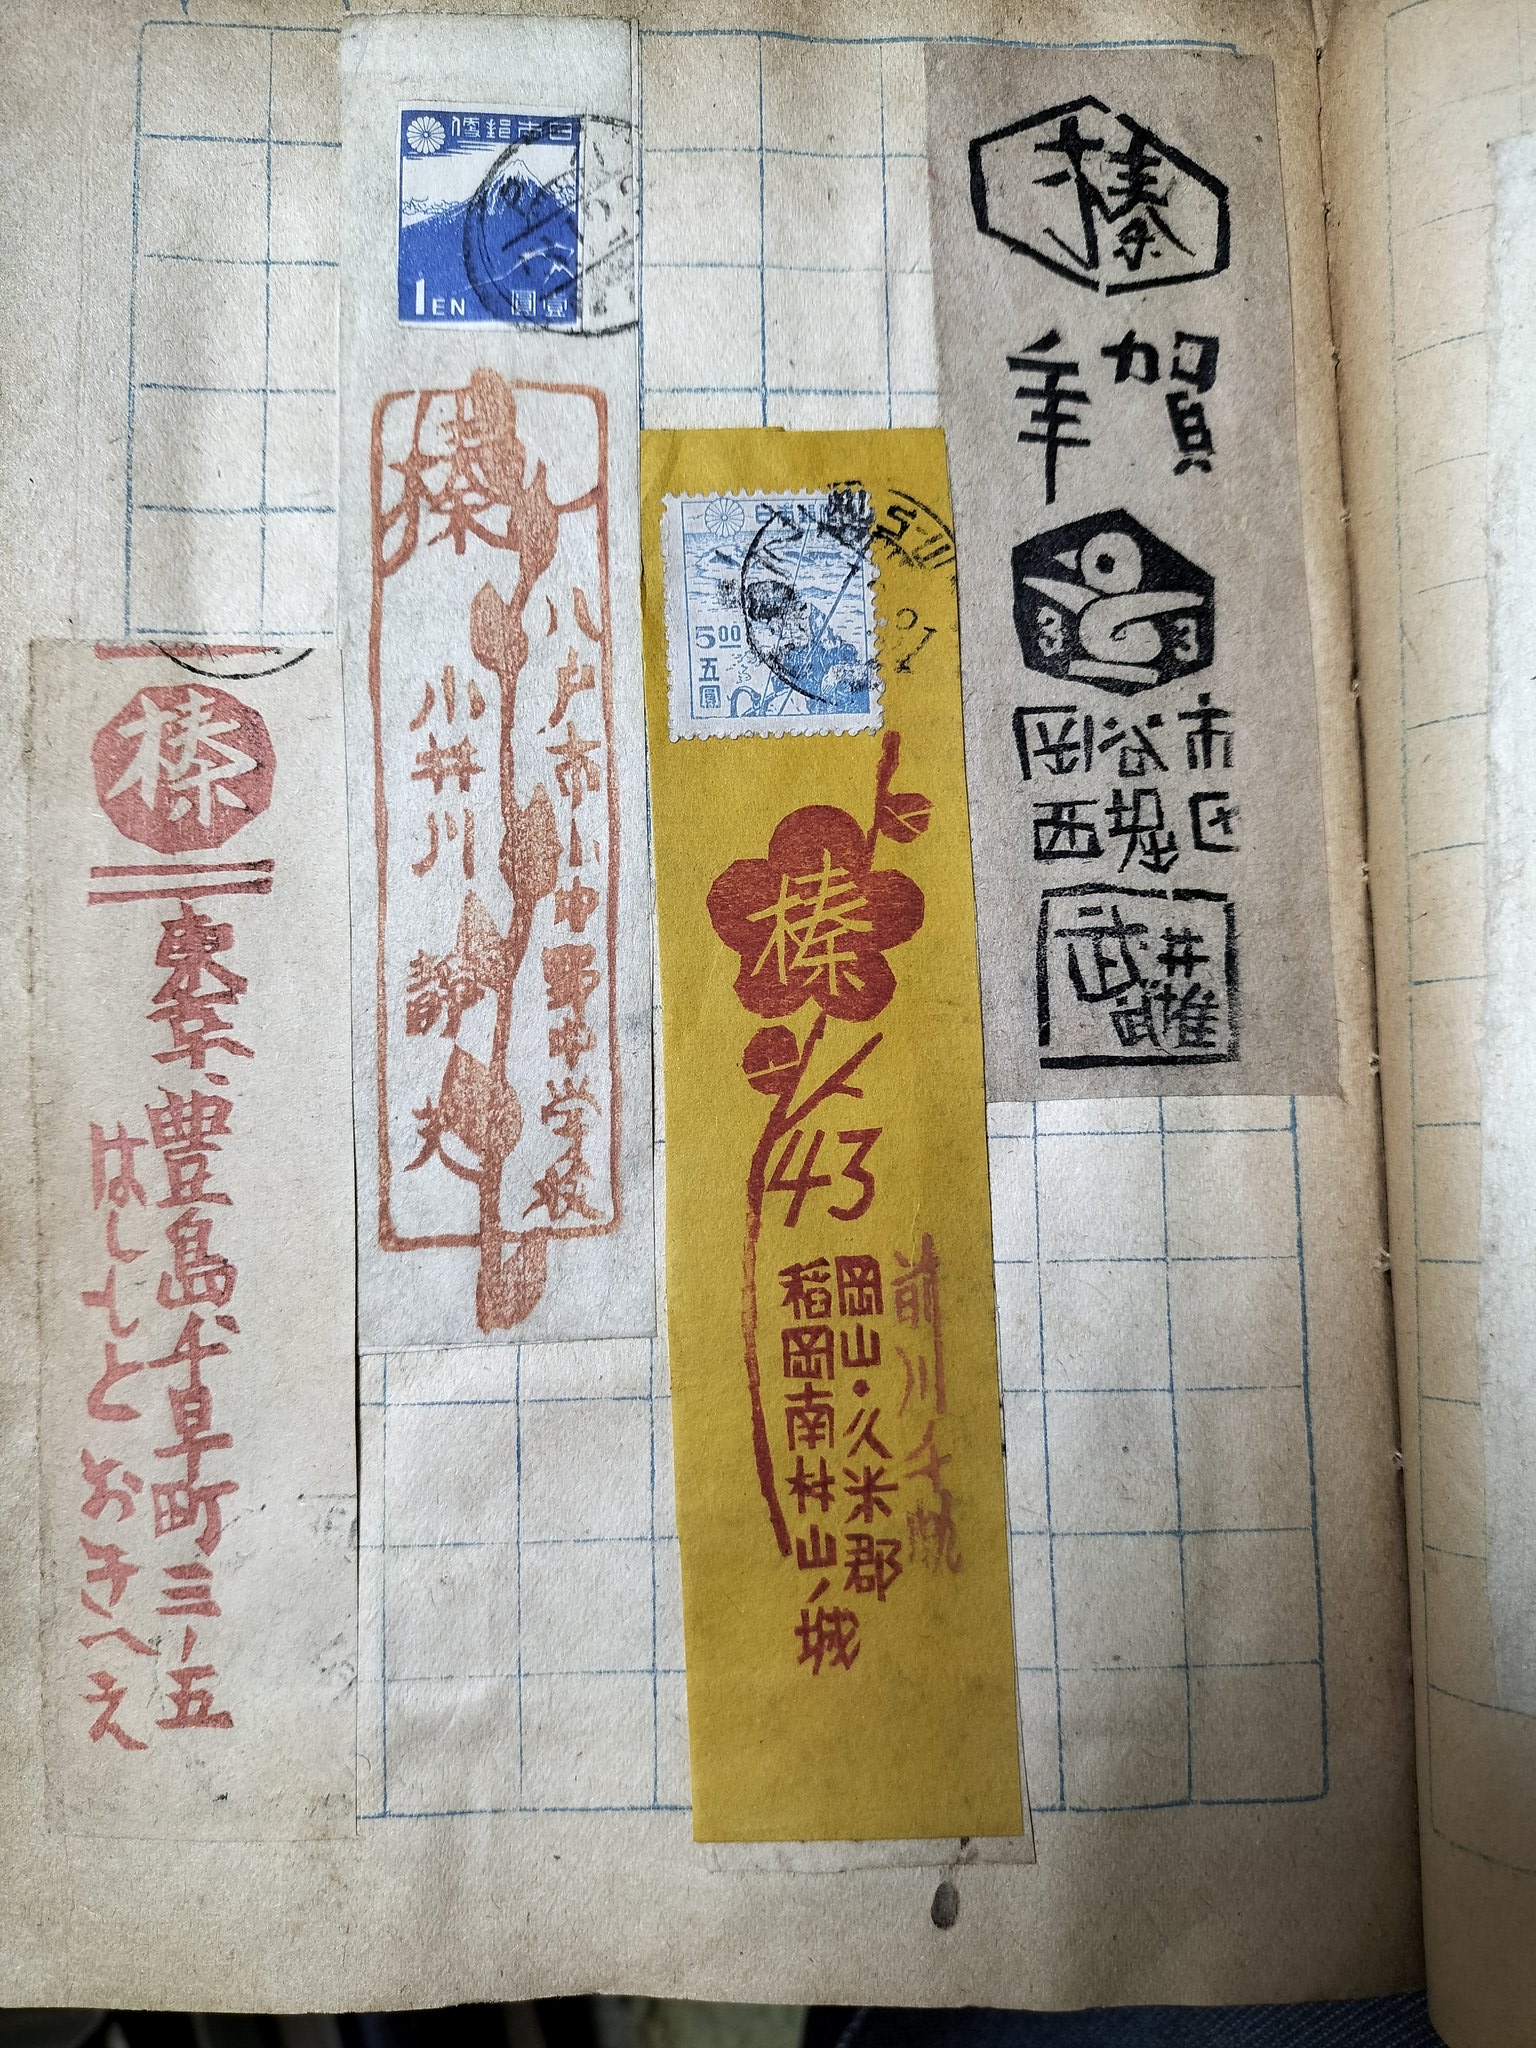 榛
年賀
33
岡谷市
西堀区
武井
武雄
日本郵便
5.00
五圓
榛
43
前川千帆
岡山・久米郡
稲岡南村山ノ城
日本郵便
1EN
壹圓
榛
八戸市小中野中学校
小井川静夫
榛
東京、豊島千早町三ノ五
はしもとおきへえ